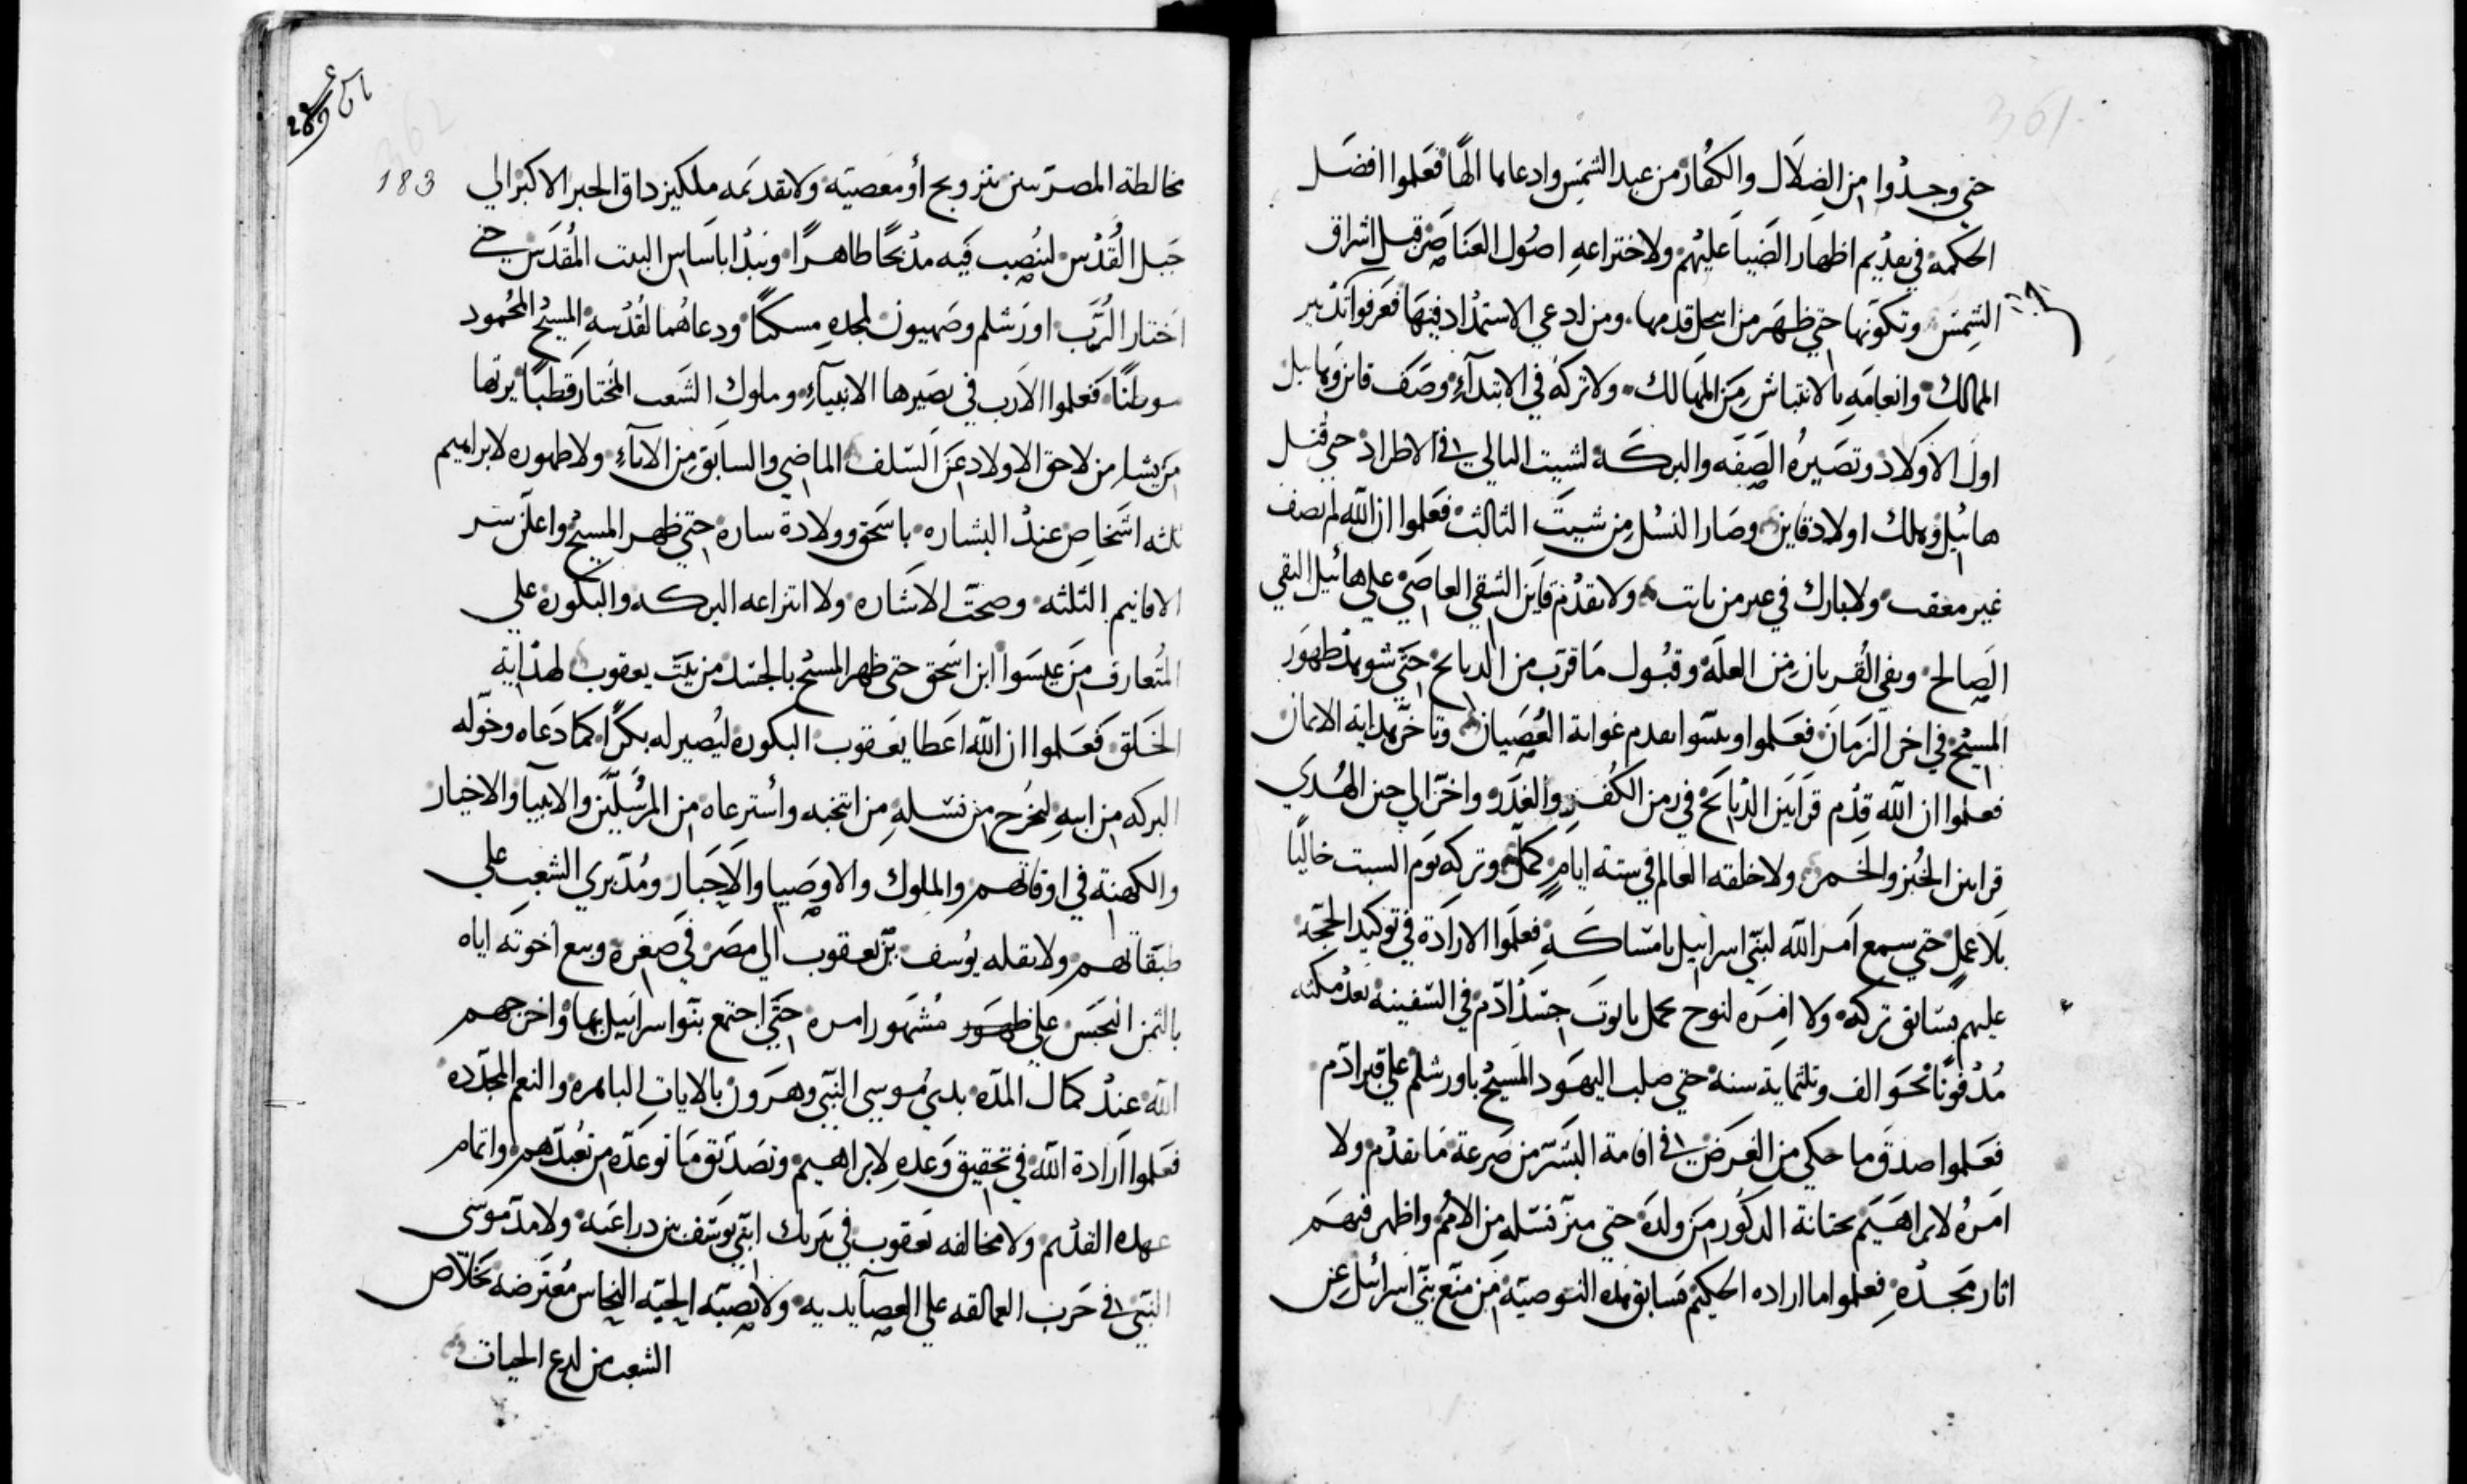 361
حتي وجدُوا من الضلَال والكفُار من عبد الشمس وادعاها الهًا فعَلموا افضَل
الحكمة في تقديم اظهار الضَياَ عليهُم ولا ختراعهِ اصُول العنَاصَر قبل اشراق
الشِمسَ وتكونها حتي ظهَر من انتحل قدمها ومن ادعي الاستمدْاد فيهَا فعَرفوا تدْبير
الممالكْ وانعامَهِ بالانتباش مِنَ المهَالك ولا تركهْ في الابتدآءْ وصَف قاين وهابيل
اولَ الاوَلادْ وتصَيرهُ الصِفَه والبركَة لشيت التالي في الاطرادْ حتي قُتل
هابيْل وهلك اولاد قاين وصَار النسْل مِن شيتَ الثالث فعَلموا ان الله لم يصف
غير معقب ولا يبارك في غير من ثابت ولا تقدْم قاَين الشقي العاصَي علي هابيْل التقي
الصَالح ونفي القُربان مِن العلَة وقبُول مَا قرَب من الدبايح حتَي شوهدْ ظهَور
المسيْح في اخر الزمَان فعَلموا وتبينَوا تقدم غواية العُصَيان وتاَخرَ هداية الايمان
فعلموا ان الله قدْم قرَابيَن الدْبايَح في زمن الكُفر والغدَر واخرَ الي حين الهُدَي
قرابين الخبُز والخَمر ولا خلقه العالم في ستة ايامٍ كمَلَ وتركه يوَم السبت خاليًا
بلَا عملٍ حتي سمع اَمر الله لبنَي اسرايْيل بامتسَاكَهِ فعلَموا الارادَة في توكيد الحجَة
عليهم بسَابق تركهْ ولا امِرَه لنوح بحمل تابوتَ جسَدْ ادَم في السَفينه بعدُ مكثه
مُدْفونًا نحَو الف وثلثماية سنة حتي صلب اليهَود المَسيحْ باورشلم علي قبر ادَم
فعَلموا صدقَ ما حكي من الغَرضْ في اقامة البشَر من صَرعة مَا تقدْم ولا
امَرهُ لابراهَيَم بختانة الدكوُر مِن ولدَه حتي ميزَ نسَلهِ من الاممُ واظهر فيهَم
اثار مجَدْهِ فعلموا ما اراده الحكيمْ بسَابق هذه التوصيَة مَن منَع بنَي اسرائيْل عن
362
183
مخالطة المصرَيين بتزويج أو معَصيَه ولا تقديَمه ملكيزداق الحبر الاكبر الي
جَبل القُدْس لينُصِب فيَه مذْبحًا طاهرًا ويبدْا باسَاس البيت المُقدَس حتي
اخَتار الرُبَ اورَشلم وصَهيون لمجدهِ مسكنًا ودعاهُما لقُدْسهِ المسيْح المحُمود
موطنًا فَعَلموا الاَرب في بصَيرها الانبيآءِ وملوك الشَعب المُختار قطبًا يرثها
مَن يشاء من لاحق الاولاد عَن السَلف الماضَي والسابَق مِن الاباءِ ولا ظهوره لابراهيم
ثلثه اشَخاص عندْ البشاره باسَحق وولادة ساره حتي ظهر المسيحْ واعلَن سَر
الاقانيم الثلثه وصحَت الاشَاره ولا انتزاعه البركه والبكُوره علي
المتُعارف مَن عيسَوا ابن اسَحق حتي ظهر المسيْح بالجسَد من بيتَ يعقوب لهدْاية
الخَلق فَعَلموا ان الله اعَطا يعَقوب البكوره ليُصير له بكرًا كما دَعاه وخوَله
البركه من ابيهِ ليخُرج من نسَلهِ من انتخبه وأسترعاه من المرسُلَين والانبيآ والاخيار
والكهنِة في اوقاتهم والملوك والاوصَيا والاَحبَار ومُدَبري الشعبِ علي
طبقَاتهم ولا نقله يوُسف بَن يعقوب الي مصَر في صغره وبيع اخوتَه اياه
بالثمن البخَس علي ظهور مُشهَور امره حتَي اجتمع بنَوا اسرايَيل بها واخرجهم
الله عندْ كمال المدَه بيدي موُسي النبَي وهرَون بالايات الباهره والنعم المجدَده
فعَلموا ارَادة الله في تحقيق وَعدهِ لابراهيم وتصَدَيق مَا توعدَه من تعُبدَهم واتمام
عهده القدْيم ولا مخالفه يعَقوب في تبَريك ابنَي يوسَف بين دراعَيه ولا مدَ موَسَي
النبَي في حَرب العمالقه علي العصآ يديه ولا نصبَه الحيَه النحاس مُعتَرضه بخَلاَص
الشعب من لدع الحيات